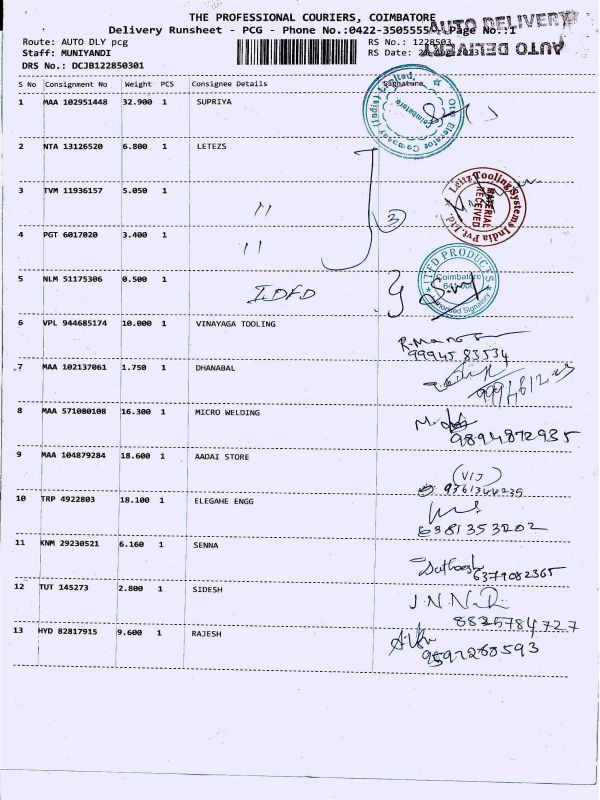 THE PROFESSIONAL COURIERS, COIMBATORE
AUTO DELIVERY
Delivery Runsheet - PCG - Phone No.:0422-3505555 Page No.:1
Route: AUTO DLY pcg RS No.: 1228503
AUTO DELIVERY
Staff: MUNIYANDI RS Date:
DRS No.: DCJB122850301
S No Consignment No Weight PCS Consignee Details Signature
1 MAA 102951448 32.900 1 SUPRIYA
Otis Elevator Company (India) Limited, Coimbatore
2 NTA 13126520 6.800 1 LETEZS
3 TVM 11936157 5.050 1 "
Leitz Tooling Systems India Pvt. Ltd.
MATERIAL RECEIVED
3
4 PGT 6017020 3.400 1 "
5 NLM 51175306 0.500 1 IDFD
PRODUCTS
Coimbatore
Authorised Signatory
6 VPL 944685174 10.000 1 VINAYAGA TOOLING
R.Mano
99945 83534
7 MAA 102137061 1.750 1 DHANABAL
8 MAA 571080108 16.300 1 MICRO WELDING
9894872935
9 MAA 104879284 18.600 1 AADAI STORE
(VIJ)
9761344235
10 TRP 4922803 18.100 1 ELEGAHE ENGG
6381353202
11 KNM 29230521 6.160 1 SENNA
Sathosh
6379082365
12 TUT 145273 2.800 1 SIDESH
8825784727
13 HYD 82817915 9.600 1 RAJESH
9597268593